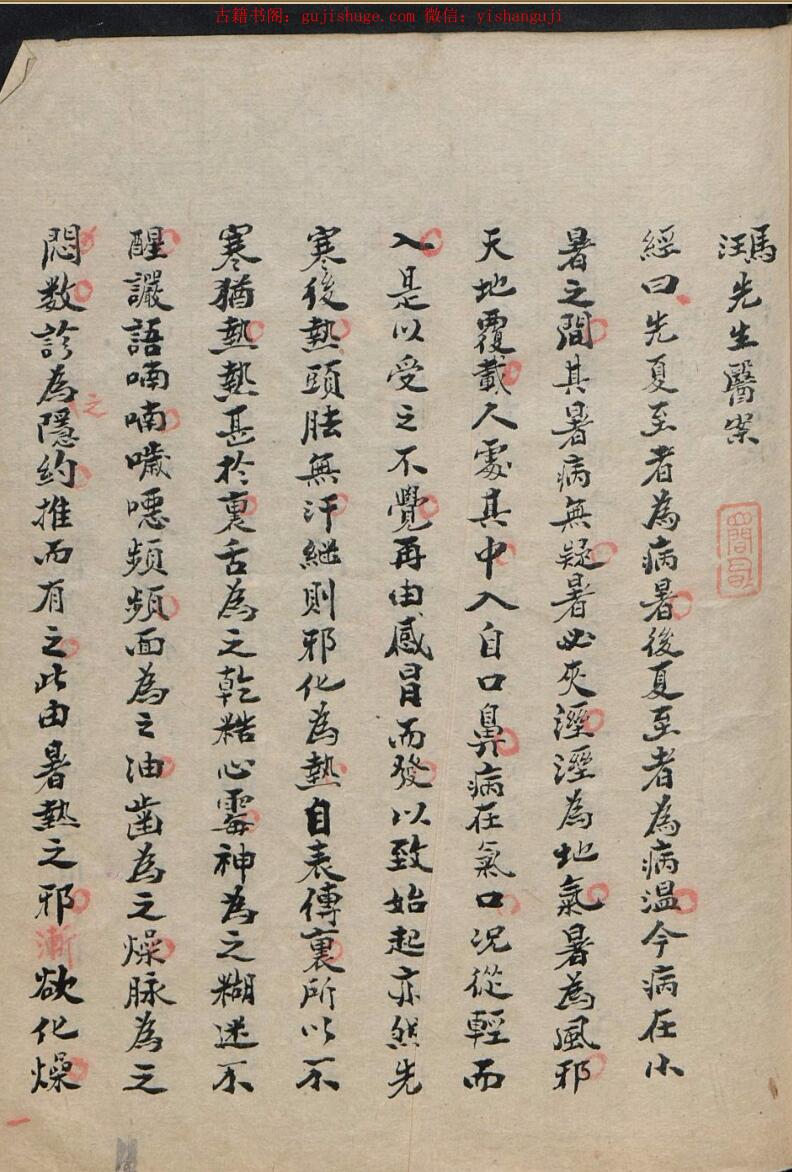 古籍书阁：gujishuge.com 微信：yishanguji
馮汪先生醫案
經曰先夏至者為病暑後夏至者為病溫今病在小
暑之間其暑病無疑暑必夾溼溼為地氣暑為風邪
天地覆載人處其中入自口鼻病在氣口況從輕而
入是以受之不覺再由感冒而發以致始起亦然先
寒後熱頭胀無汗繼則邪化為熱自表傳裏所以不
寒猶熱熱甚於裏舌為之乾糙心霉神為之糊迷不
醒讝語喃喃噦噁頻頻面為之油齒為之燥脉為之
悶数診為之隱約推而有之此由暑熱之邪漸欲化燥